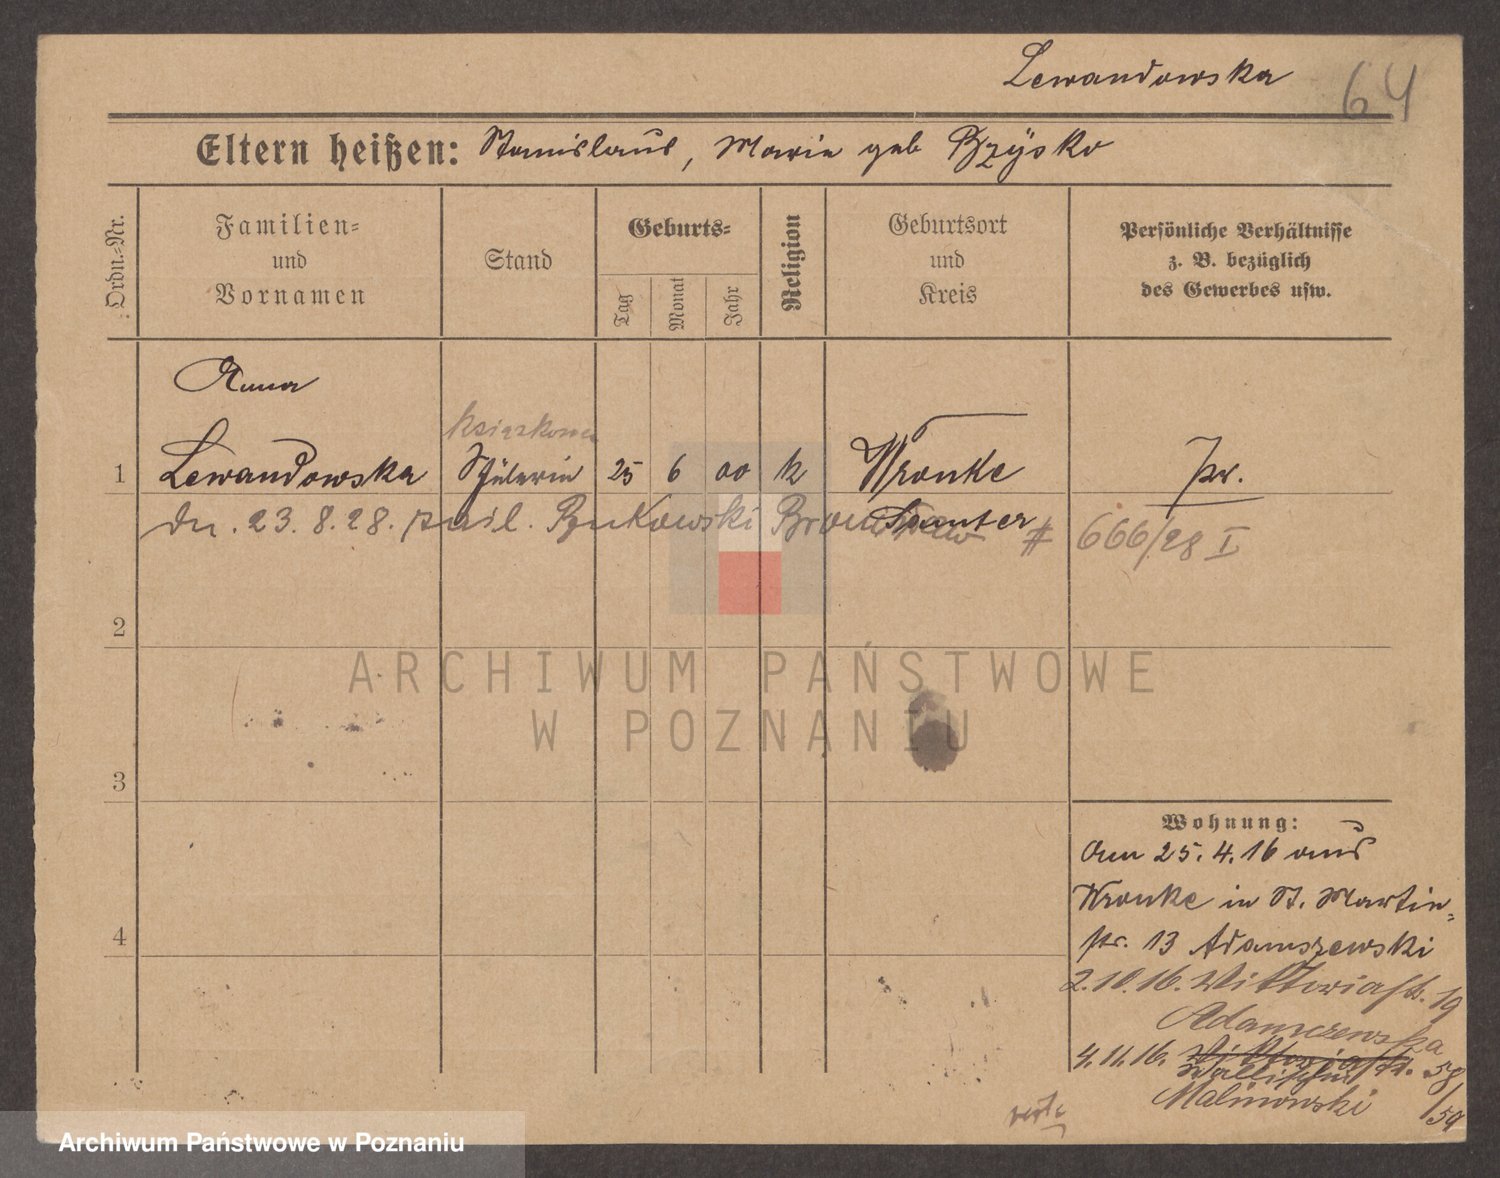 Lewandowska
64
Eltern heißen: Stanislaus, Marie geb Bzysko
Ordn.-Nr.
Familien-
und
Vornamen
Stand
Geburts-
Tag
Monat
Jahr
Religion
Geburtsort
und
Kreis
Persönliche Verhältnisse
z. B. bezüglich
des Gewerbes usw.
Anna
1 Lewandowska Schülerin 25 6 00 k Wronke pr.
Samter
dn. 23.8.28. Bukowski # 666/28 I
2
3
4
ARCHIWUM PAŃSTWOWE
W POZNANIU
Wohnung:
Am 25.4.16 aus
Wronke in St. Martin-
str. 13 Adamszewski
2.10.16. Viktoriastr. 19
Adamszewska
4.11.16. Viktoriastr. 58/59
Wallischei
Malinowski
verte
Archiwum Państwowe w Poznaniu